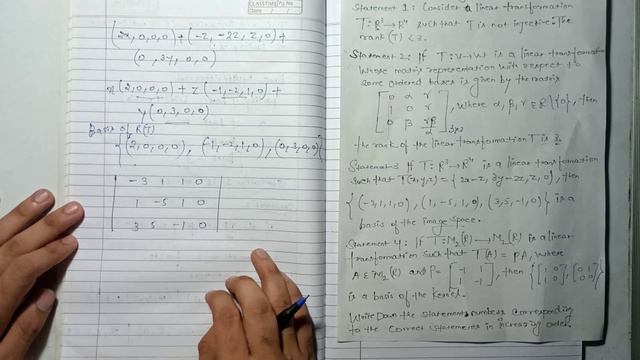 CLASSTIME Pg No.
Date / /
(2x,0,0,0)+(-z,-2z,z,0)+
(0,3y,0,0)
x(2,0,0,0)+z(-1,-2,1,0)+
y(0,3,0,0)
Basis of R(T)
{(2,0,0,0), (-1,-2,1,0), (0,3,0,0)}
-3 1 1 0
1 -5 1 0
3 5 -1 0
Statement 1: Consider a linear transformation
T: R³→R⁴ such that T is not injective. The
rank(T) < 3.
Statement 2: If T: V→W is a linear transformation
whose matrix representation with respect to
some ordered bases is given by the matrix
[0 α γ
1 0 γ
0 β γβ/α]3x3, where α, β, γ ∈ R\{0}, then
the rank of the linear transformation T is 3.
Statement 3 If T: R³→R⁴ is a linear transformation
such that T(x,y,z) = {2x-z, 3y-2z, z, 0}, then
{(-3,1,1,0), (1,-5,1,0), (3,5,-1,0)} is a
basis of the image space.
Statement 4: If T: M₂(R)→M₂(R) is a linear
transformation such that T(A) = PA, where
A ∈ M₂(R) and P = [-1 1
-1 1], then {[1 0
1 0], [0 1
0 0]}
is a basis of the Kernel.
Write Down the statements numbers corresponding
to the correct statements in increasing order.